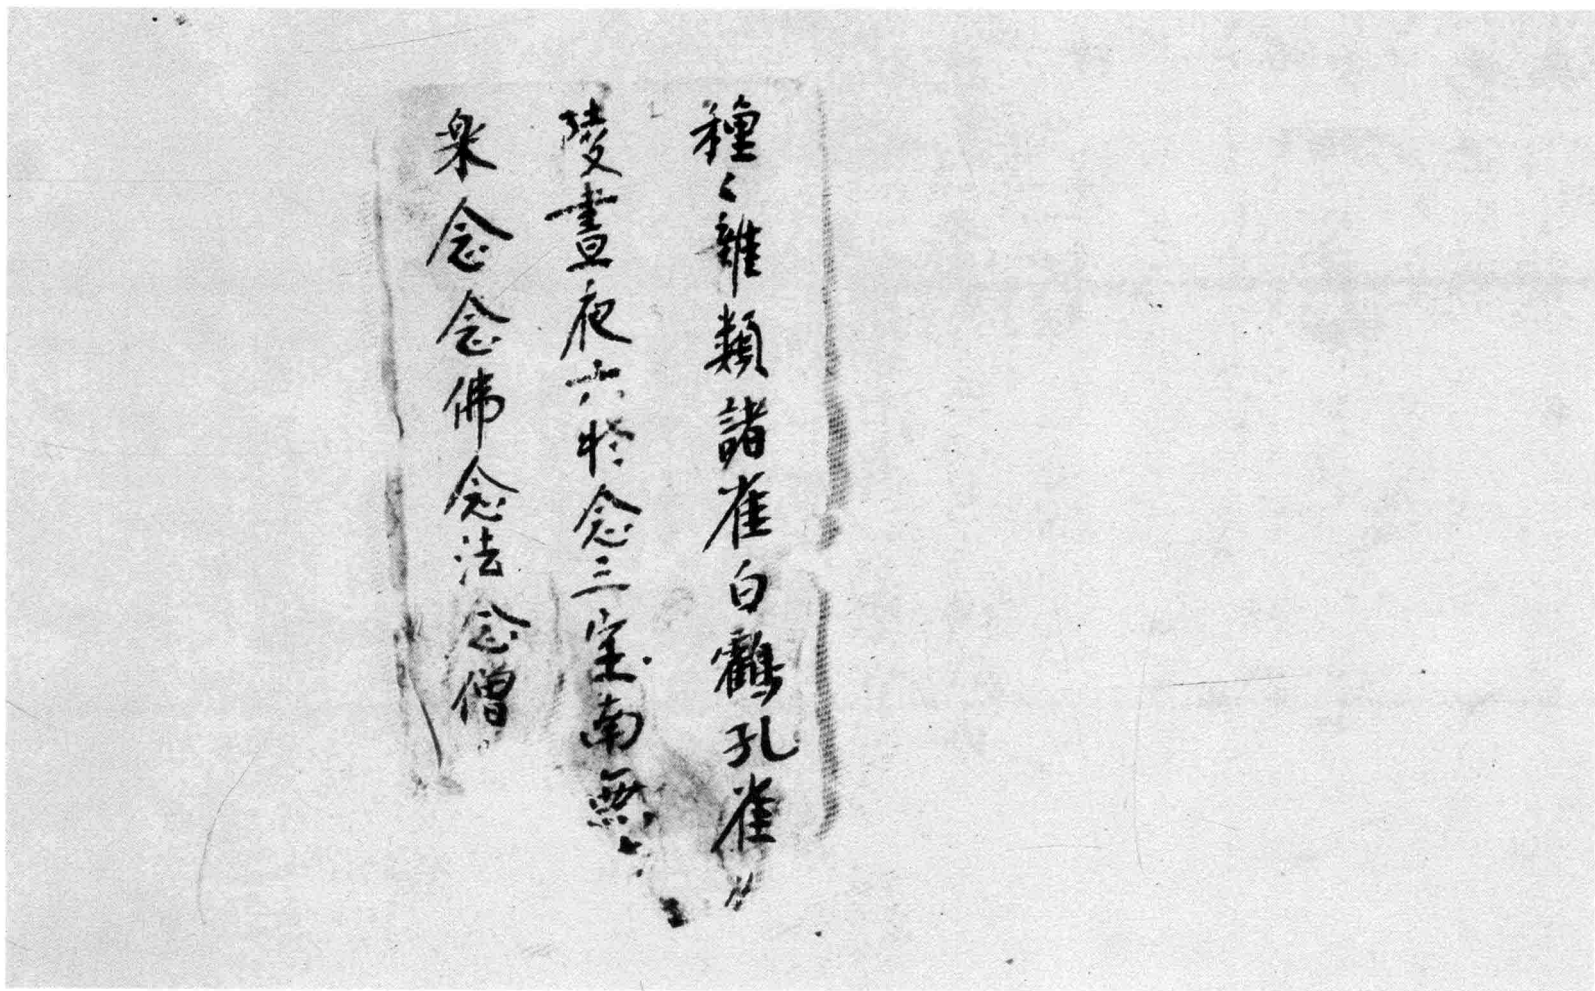 種〻雜類諸雀白鶴孔雀
陵晝夜六時念三寶南無
衆念念佛念法念僧